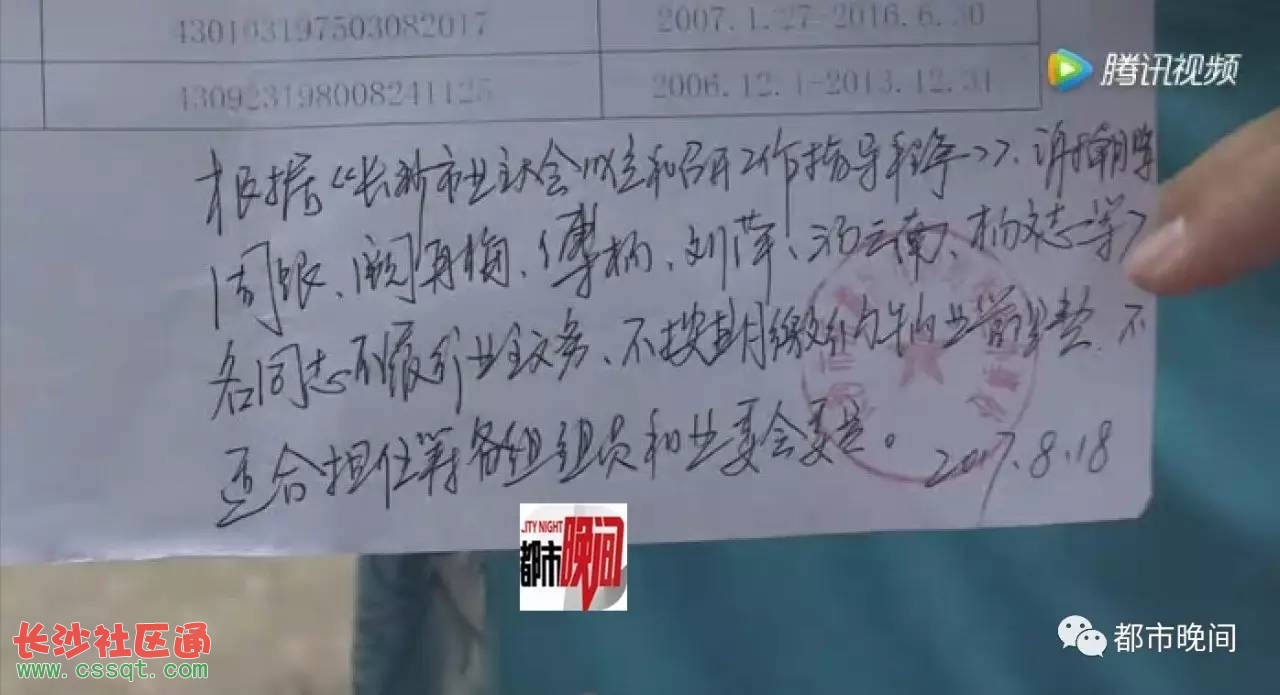 2007.1.27-2016.6.30
2006.12.1-2013.12.31
腾讯视频
根据《长沙市业主大会成立和召开工作指导程序》、
周银、阙再梅、傅柄、刘萍、汤云南、杨文志等7
名同志不履行业主义务、不按月缴纳物业管理费、不
适合担任筹备组组员和业委会委员。 2017.8.18
ITY NIGHT
都市晚间
长沙社区通
www.cssqt.com
都市晚间